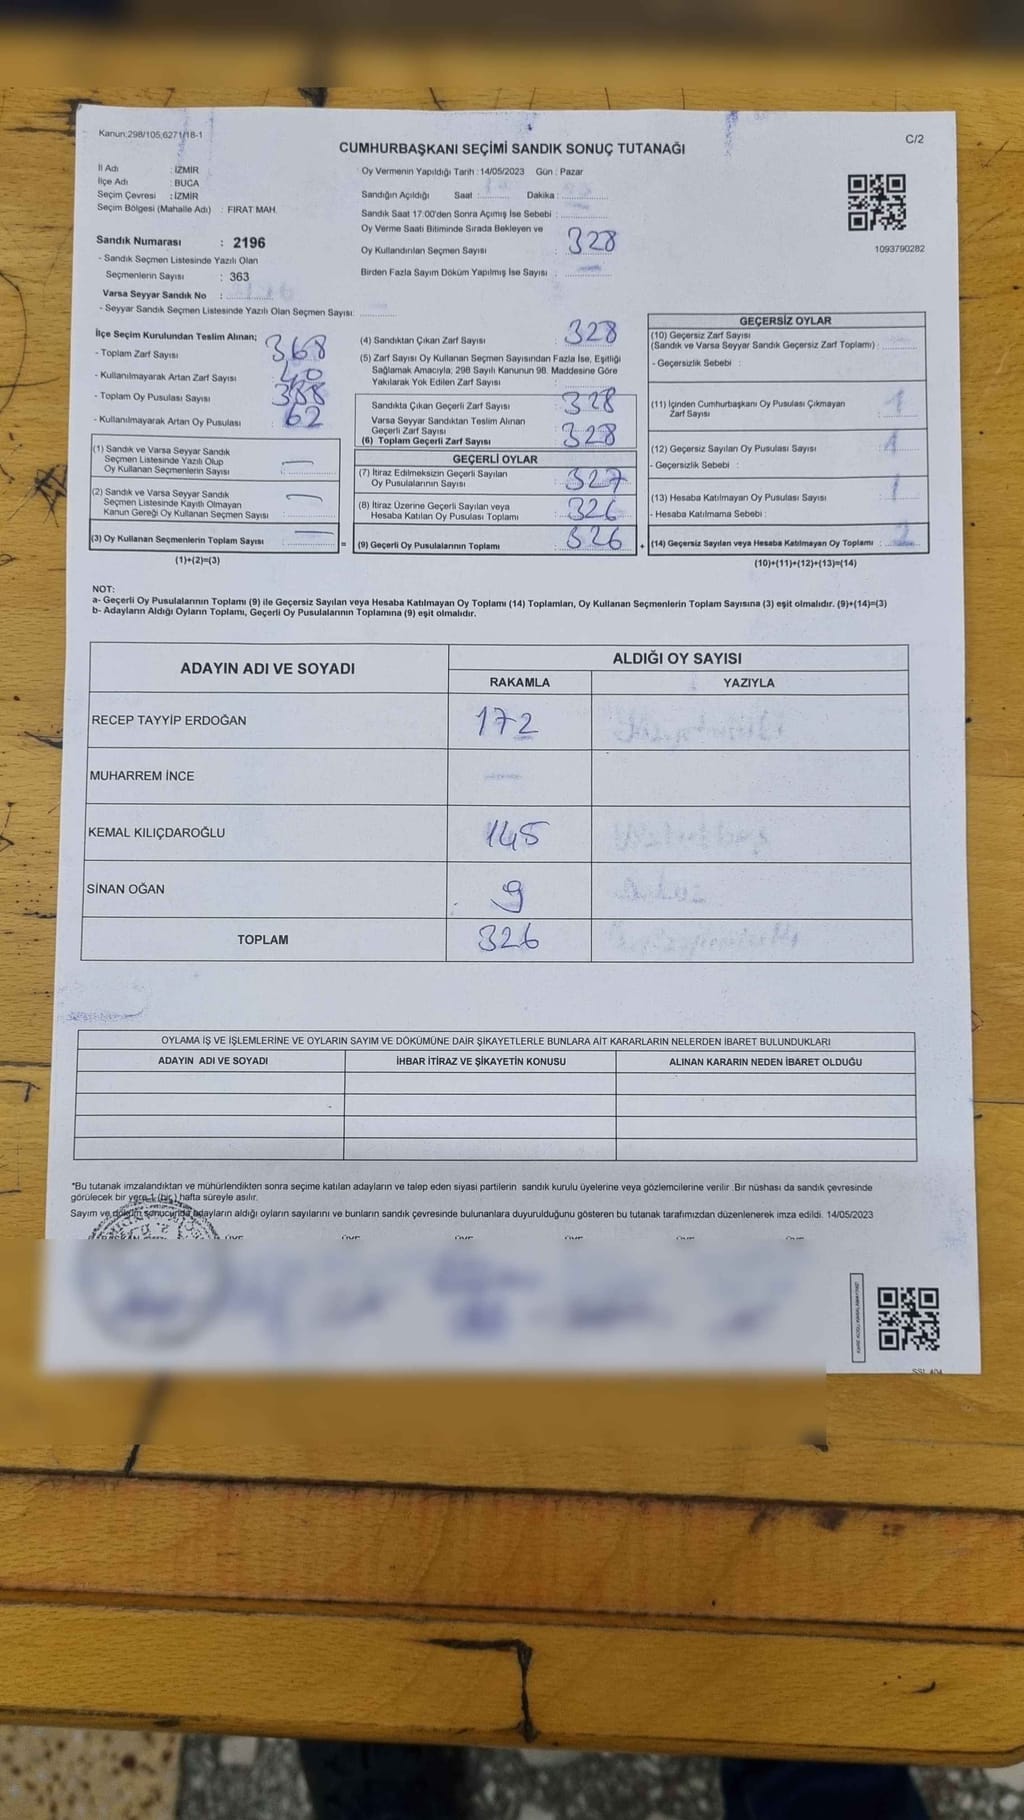 Kanun:298/105,6271/18-1
C/2
CUMHURBAŞKANI SEÇİMİ SANDIK SONUÇ TUTANAĞI
İl Adı : İZMİR
İlçe Adı : BUCA
Seçim Çevresi : İZMİR
Seçim Bölgesi (Mahalle Adı) : FIRAT MAH.
Sandık Numarası : 2196
- Sandık Seçmen Listesinde Yazılı Olan
Seçmenlerin Sayısı : 363
Varsa Seyyar Sandık No :
- Seyyar Sandık Seçmen Listesinde Yazılı Olan Seçmen Sayısı:
Oy Vermenin Yapıldığı Tarih : 14/05/2023 Gün : Pazar
Sandığın Açıldığı Saat : Dakika :
Sandık Saat 17:00'den Sonra Açımış İse Sebebi :
Oy Verme Saati Bitiminde Sırada Bekleyen ve
Oy Kullandırılan Seçmen Sayısı : 328
Birden Fazla Sayım Döküm Yapılmış İse Sayısı :
1093790282
İlçe Seçim Kurulundan Teslim Alınan;
- Toplam Zarf Sayısı : 368
- Kullanılmayarak Artan Zarf Sayısı : 40
- Toplam Oy Pusulası Sayısı : 388
- Kullanılmayarak Artan Oy Pusulası : 62
(1) Sandık ve Varsa Seyyar Sandık
Seçmen Listesinde Yazılı Olup
Oy Kullanan Seçmenlerin Sayısı :
(2) Sandık ve Varsa Seyyar Sandık
Seçmen Listesinde Kayıtlı Olmayan
Kanun Gereği Oy Kullanan Seçmen Sayısı :
(3) Oy Kullanan Seçmenlerin Toplam Sayısı :
(1)+(2)=(3)
(4) Sandıktan Çıkan Zarf Sayısı : 328
(5) Zarf Sayısı Oy Kullanan Seçmen Sayısından Fazla İse, Eşitliği
Sağlamak Amacıyla; 298 Sayılı Kanunun 98. Maddesine Göre
Yakılarak Yok Edilen Zarf Sayısı :
Sandıkta Çıkan Geçerli Zarf Sayısı : 328
Varsa Seyyar Sandıktan Teslim Alınan
Geçerli Zarf Sayısı :
(6) Toplam Geçerli Zarf Sayısı : 328
GEÇERLİ OYLAR
(7) İtiraz Edilmeksizin Geçerli Sayılan
Oy Pusulalarının Sayısı : 327
(8) İtiraz Üzerine Geçerli Sayılan veya
Hesaba Katılan Oy Pusulası Toplamı : 326
= (9) Geçerli Oy Pusulalarının Toplamı : 326
GEÇERSİZ OYLAR
(10) Geçersiz Zarf Sayısı
(Sandık ve Varsa Seyyar Sandık Geçersiz Zarf Toplamı) :
- Geçersizlik Sebebi :
(11) İçinden Cumhurbaşkanı Oy Pusulası Çıkmayan
Zarf Sayısı : 1
(12) Geçersiz Sayılan Oy Pusulası Sayısı : 1
- Geçersizlik Sebebi :
(13) Hesaba Katılmayan Oy Pusulası Sayısı : 1
- Hesaba Katılmama Sebebi :
+ (14) Geçersiz Sayılan veya Hesaba Katılmayan Oy Toplamı : 2
(10)+(11)+(12)+(13)=(14)
NOT:
a- Geçerli Oy Pusulalarının Toplamı (9) ile Geçersiz Sayılan veya Hesaba Katılmayan Oy Toplamı (14) Toplamları, Oy Kullanan Seçmenlerin Toplam Sayısına (3) eşit olmalıdır. (9)+(14)=(3)
b- Adayların Aldığı Oyların Toplamı, Geçerli Oy Pusulalarının Toplamına (9) eşit olmalıdır.
ADAYIN ADI VE SOYADI
ALDIĞI OY SAYISI
RAKAMLA YAZIYLA
RECEP TAYYİP ERDOĞAN 172
MUHARREM İNCE
KEMAL KILIÇDAROĞLU 145
SİNAN OĞAN 9
TOPLAM 326
OYLAMA İŞ VE İŞLEMLERİNE VE OYLARIN SAYIM VE DÖKÜMÜNE DAİR ŞİKAYETLERLE BUNLARA AİT KARARLARIN NELERDEN İBARET BULUNDUKLARI
ADAYIN ADI VE SOYADI İHBAR İTİRAZ VE ŞİKAYETİN KONUSU ALINAN KARARIN NEDEN İBARET OLDUĞU
*Bu tutanak imzalandıktan ve mühürlendikten sonra seçime katılan adayların ve talep eden siyasi partilerin sandık kurulu üyelerine veya gözlemcilerine verilir .Bir nüshası da sandık çevresinde
görülecek bir yere 1 (bir ) hafta süreyle asılır.
Sayım ve döküm sonucunda adayların aldığı oyların sayılarını ve bunların sandık çevresinde bulunanlara duyurulduğunu gösteren bu tutanak tarafımızdan düzenlenerek imza edildi. 14/05/2023